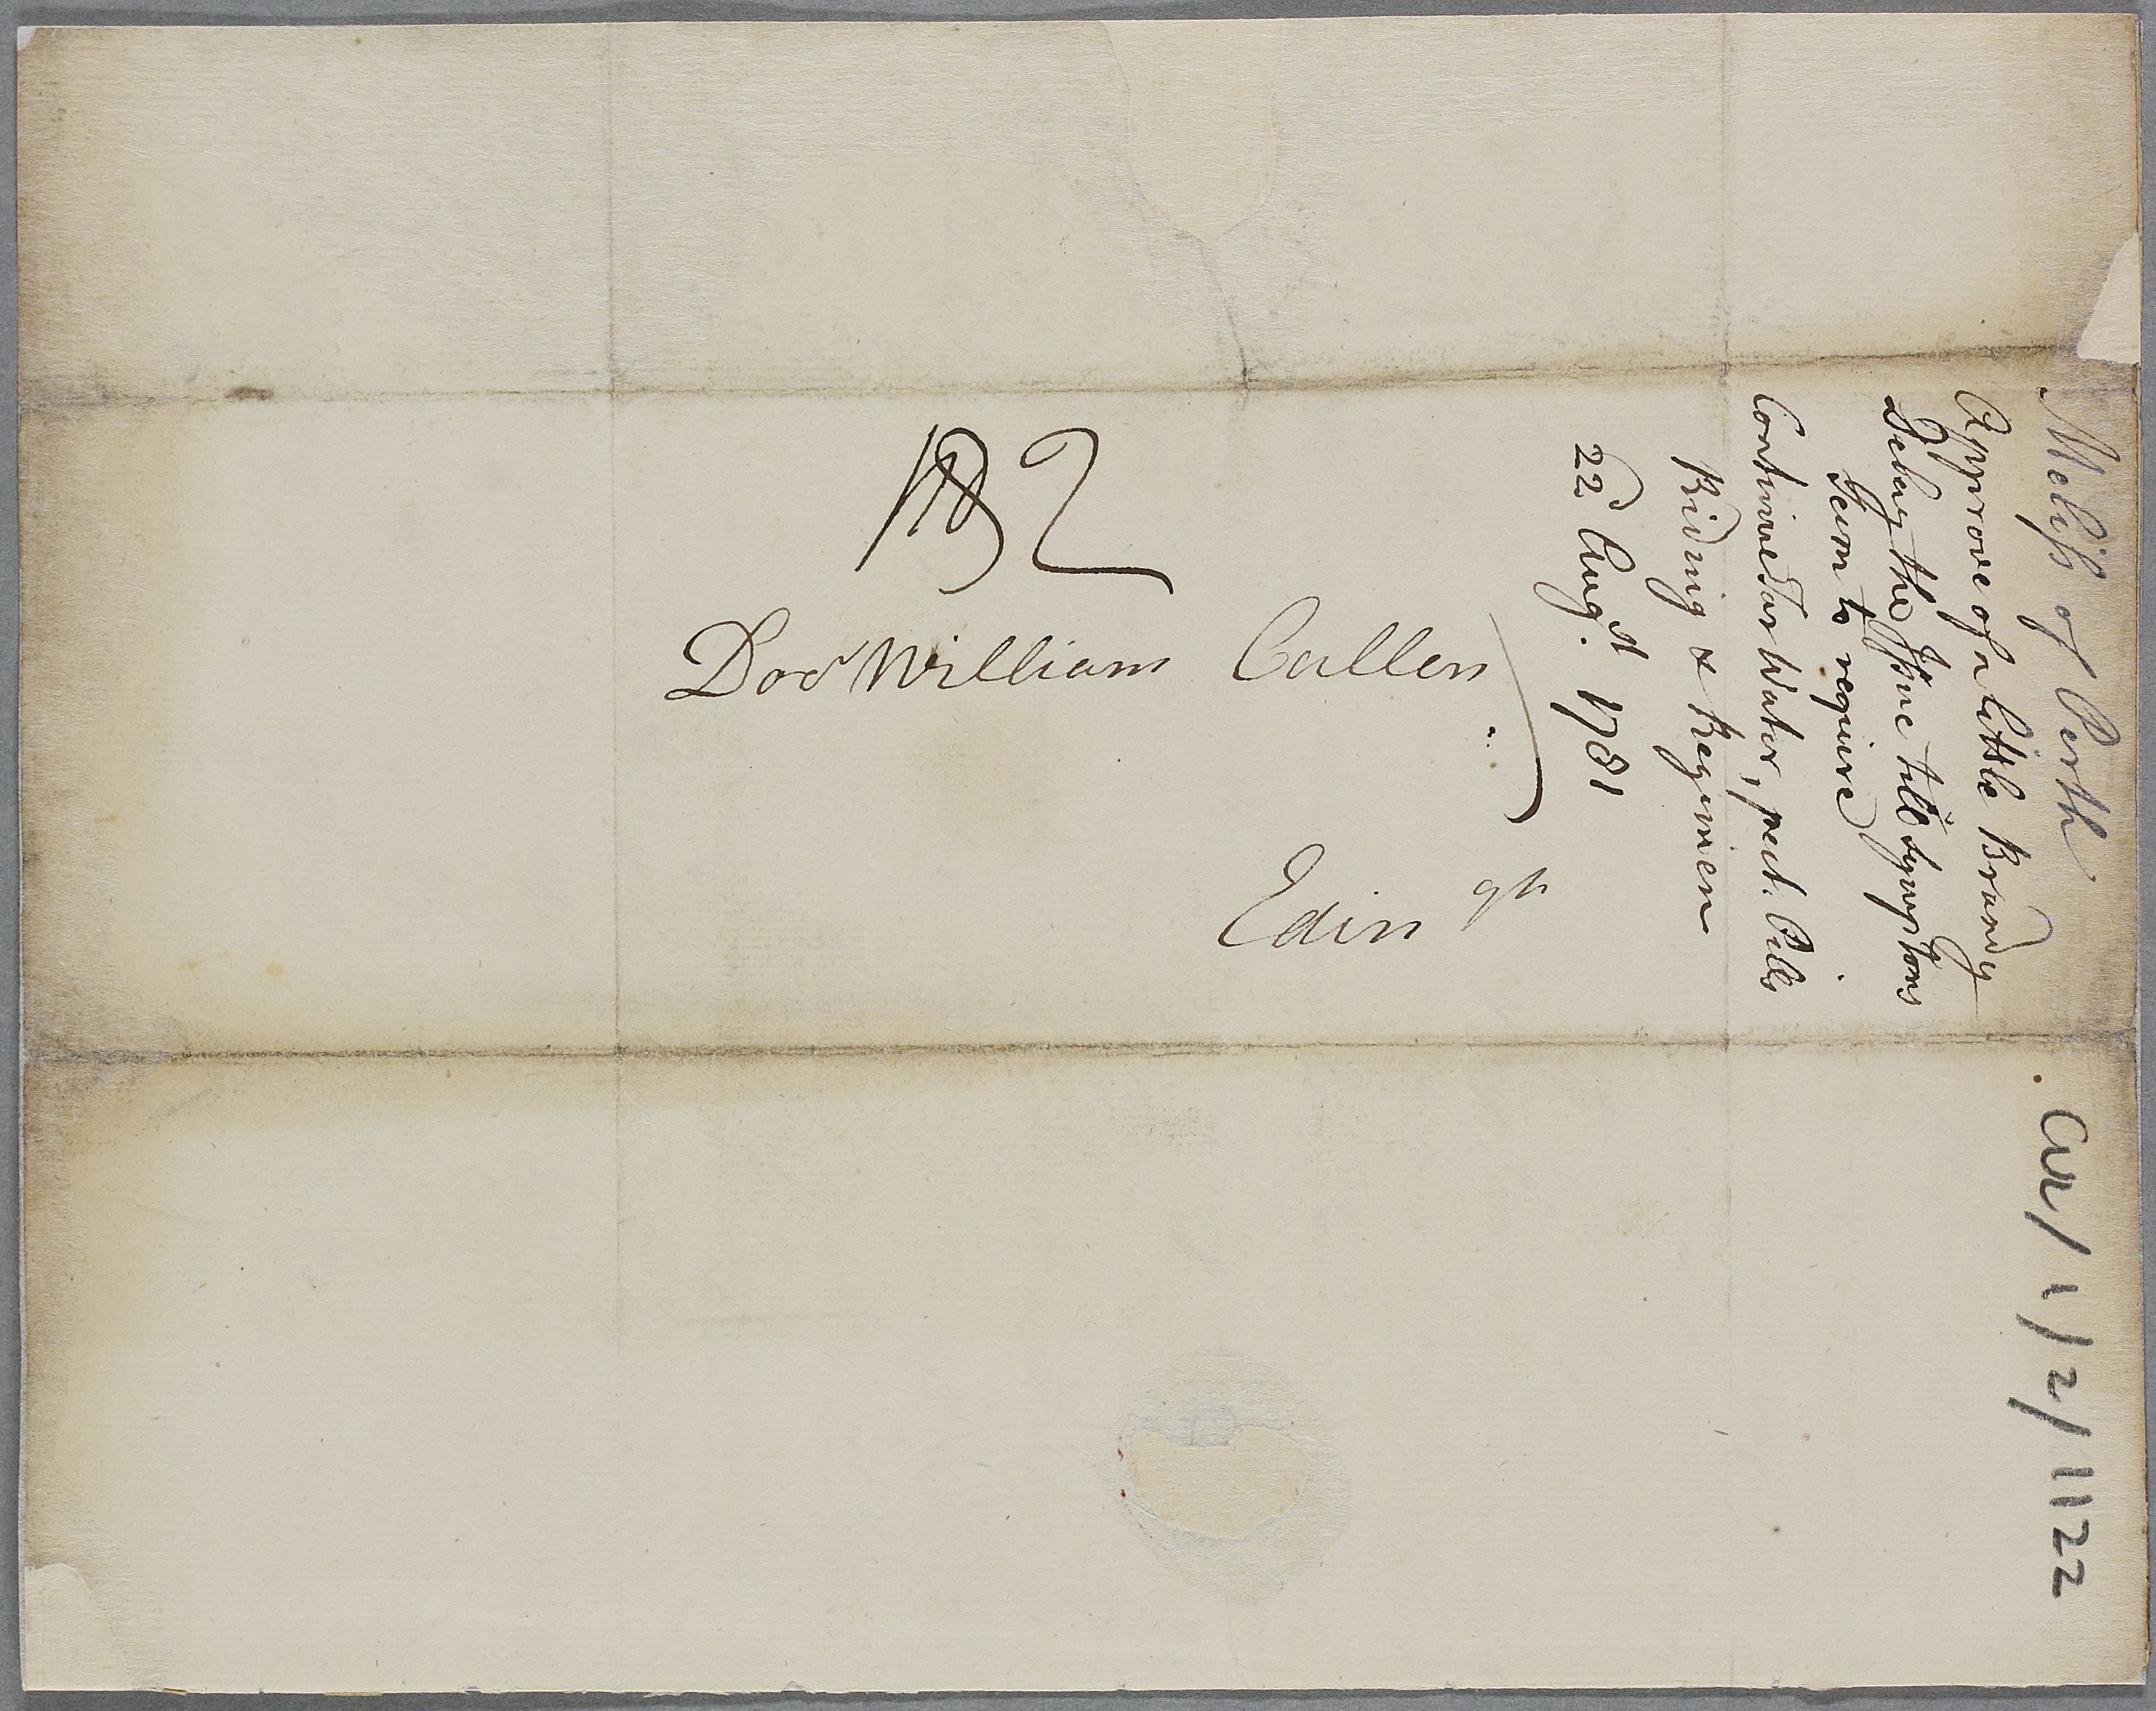 2
Docr William Cullen
Edingh
Meliss of Perth
Approve of a little Brandy
Delay the Issue till Symptoms
Seem to require
Continue Tar Water, pect. Pills
Riding & Regimen
22 Augst. 1781
CUL/1/2/1122